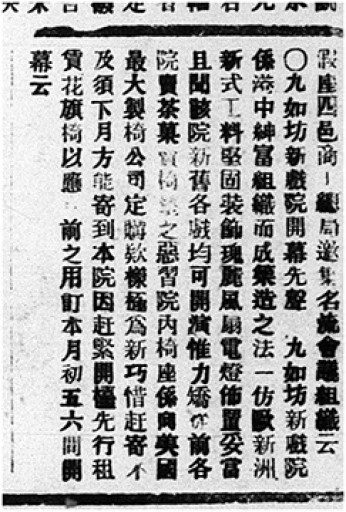 假座四邑商工總局邀集名流會議組織云
〇九如坊新戲院開幕先聲　九如坊新戲院
係港中紳富組織而成築造之法一仿歐新洲
新式工料堅固裝飾瑰麗風扇電燈佈置妥當
且聞該院新舊各戲均可開演惟力矯從前各
院賣茶菓賣椅墊之惡習院內椅座係向英國
最大製椅公司定購欵樣極為新巧惜赶寄不
及須下月方能寄到本院因赶緊開檯先行租
賃花旗椅以應前之用訂本月初五六間開
幕云